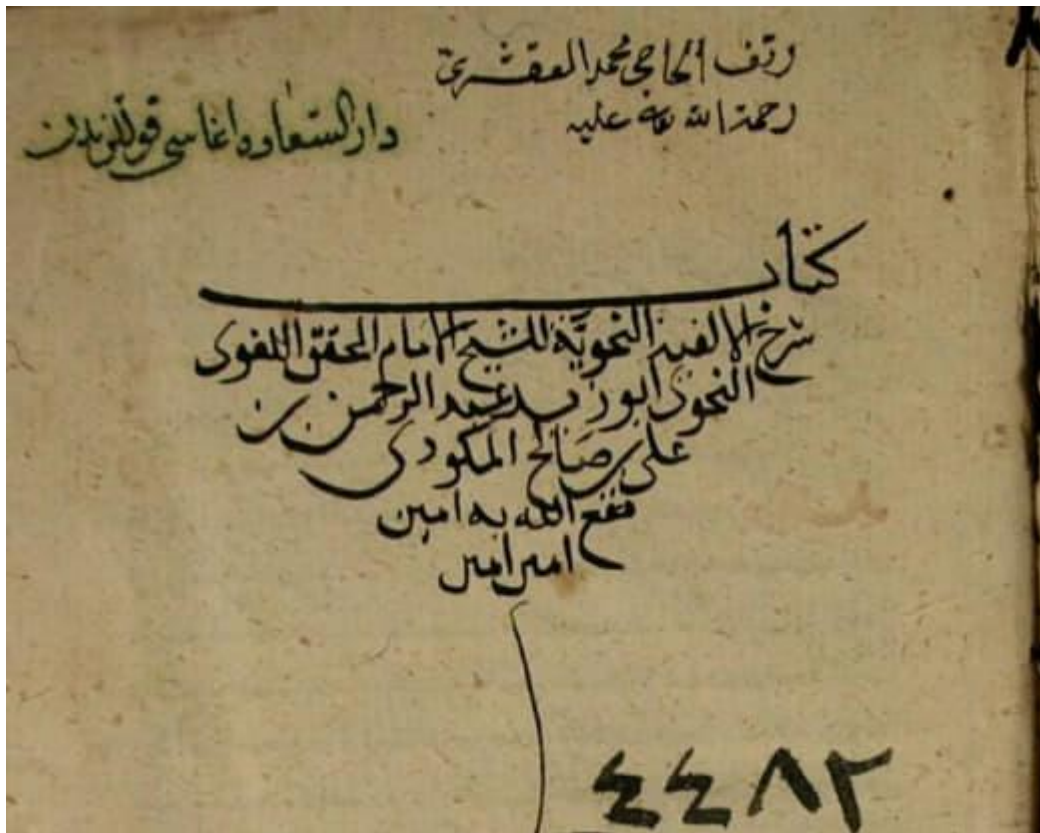 وقف الحاجي محمد العقشري
رحمة الله تعالى عليه
دار السعاده اغاسي قوللرندن
كتاب
شرح الالفية النحويّة للشيخ الامام المحقق اللغوى
النحوى ابو زيد عبد الرحمن بن
على بن صالح المكودى
نفع الله به امين
امين امين
٤٤٨٢